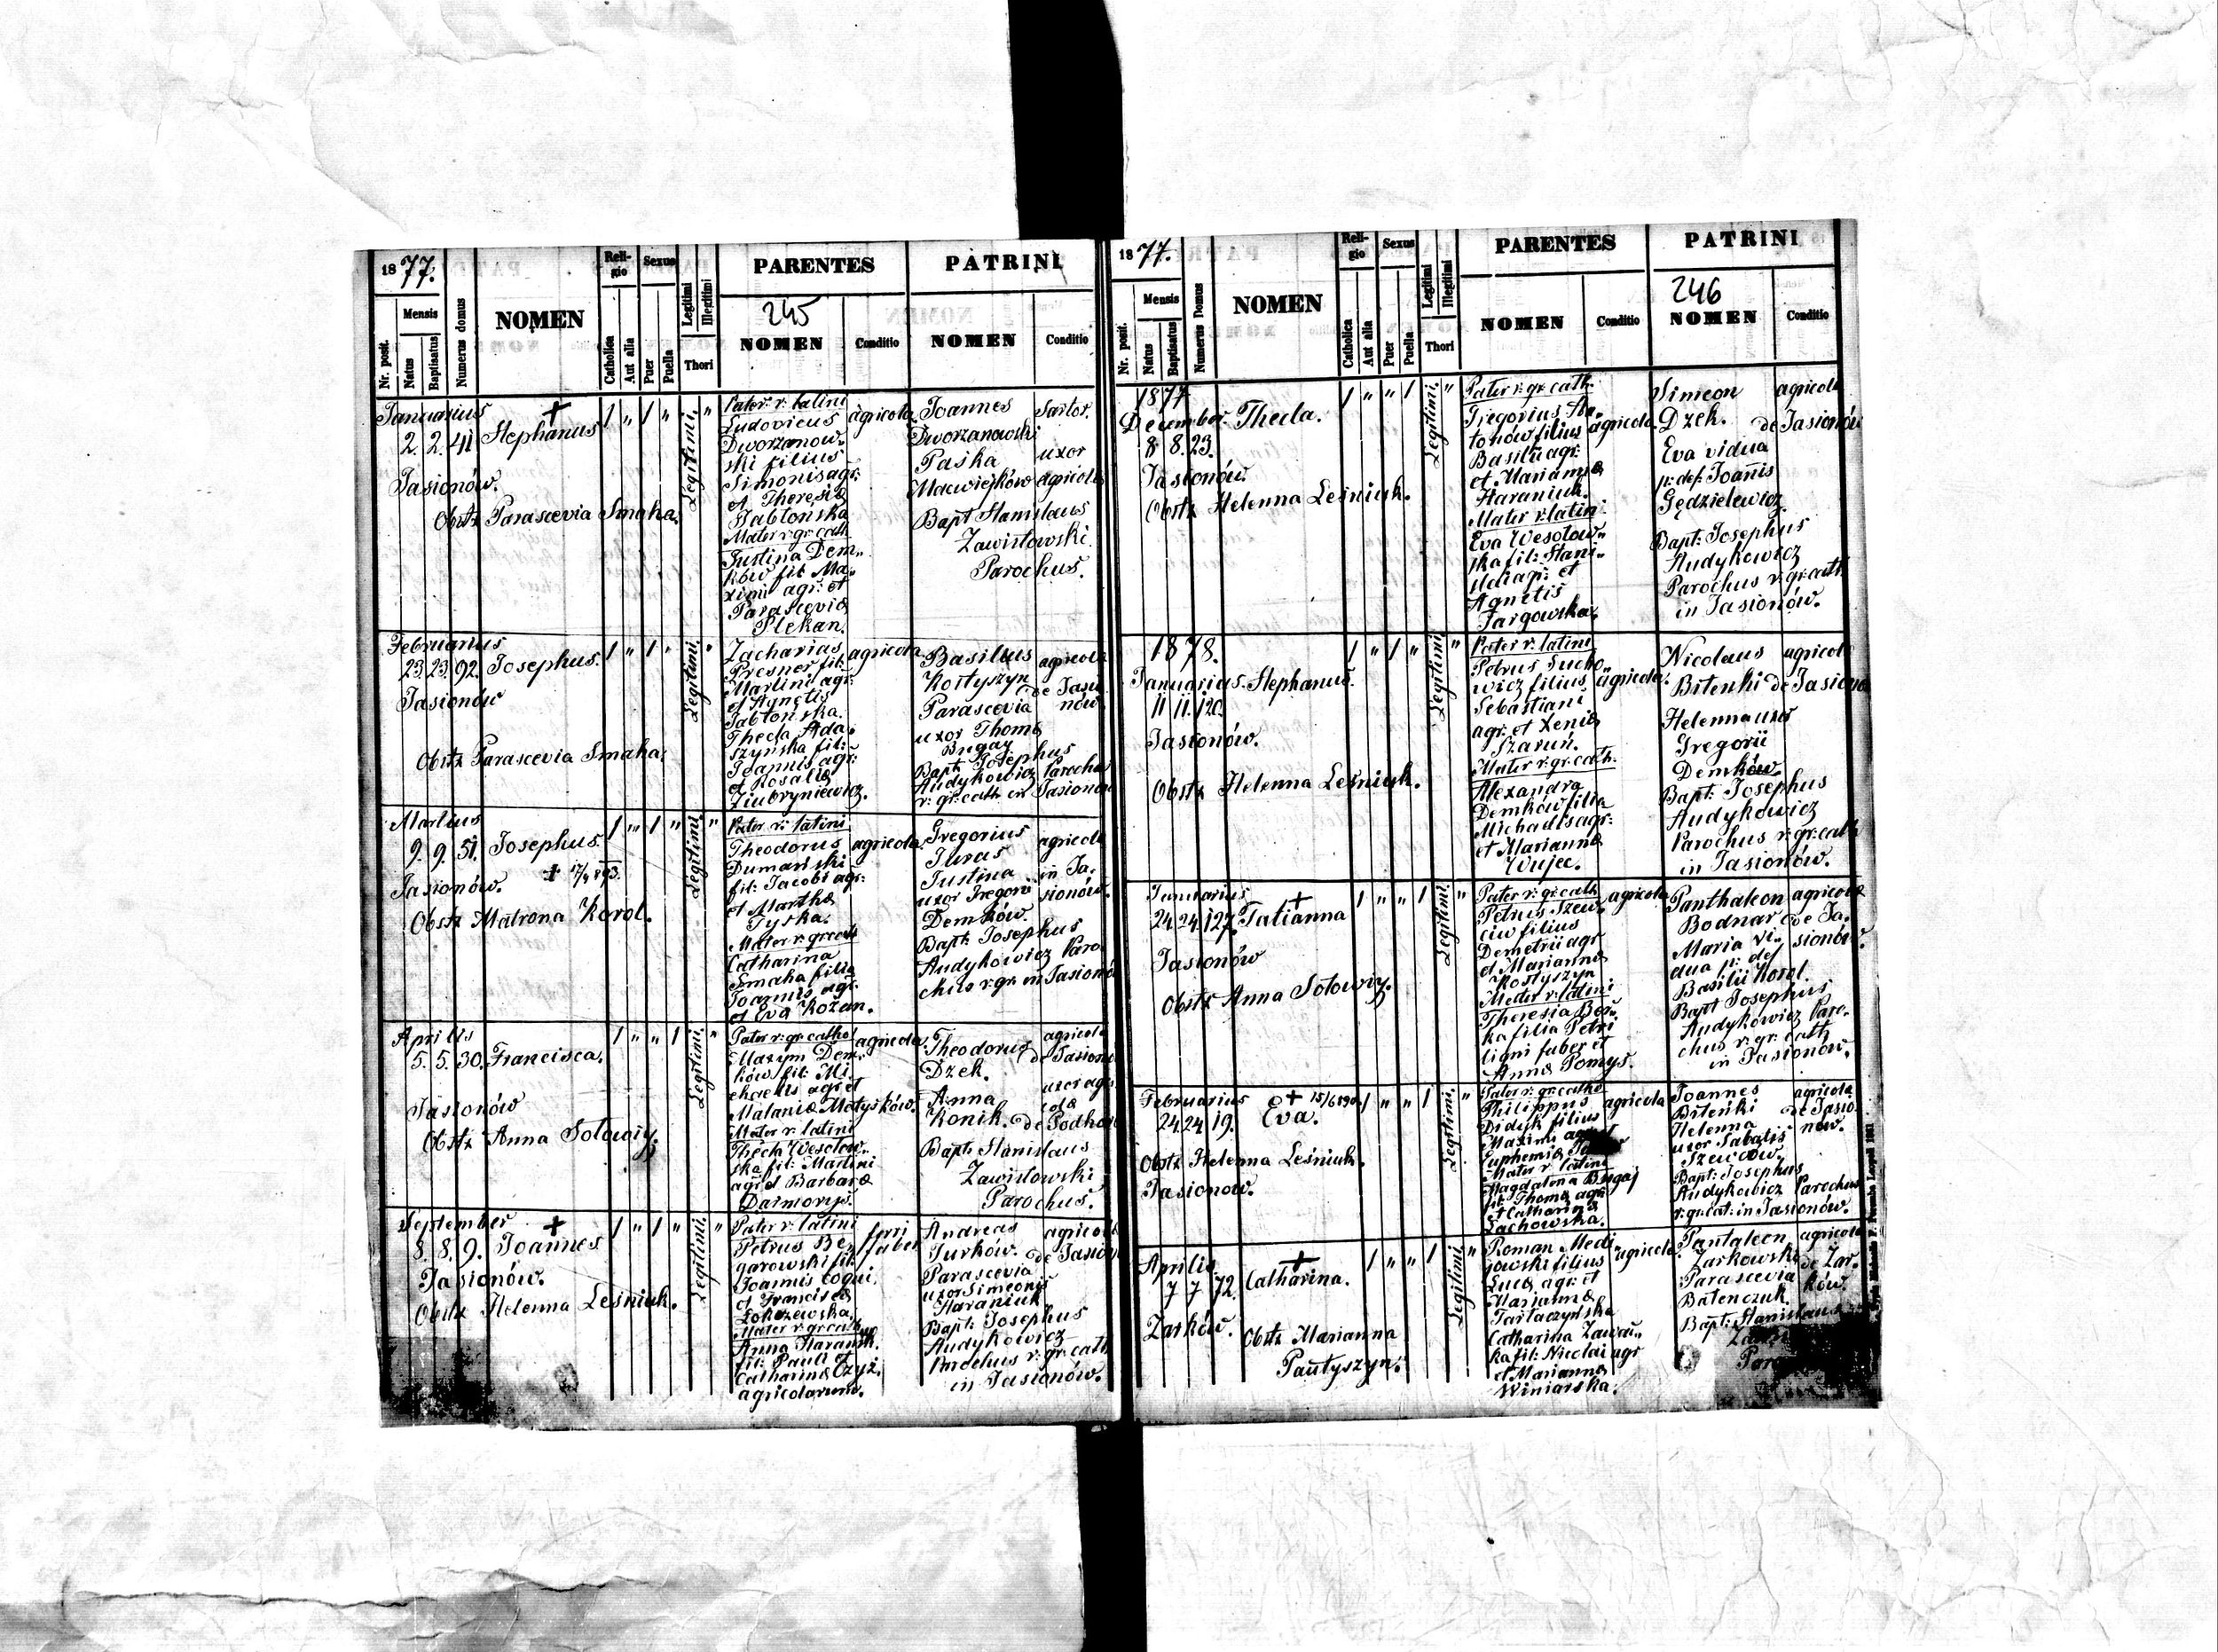 1877.
Nr. posit.
Mensis
Natus
Baptisatus
Numerus domus
NOMEN
Religio
Catholica
Aut alia
Sexus
Puer
Puella
Legitimi
Illegitimi
Thori
PARENTES
245
NOMEN
Conditio
PATRINI
NOMEN
Conditio
Januarius
2. 2. 41 Stephanus
Jasionów.
Obstx Parascevia Smaha.
1 " 1 "
Legitimi.
Pater r: latini
Ludovicus agricola
Dworzanow-
ski filius
Simonis agr:
et Theresiæ
Jabłońska
Mater r: gr: cath
Justina Dem-
ków fil: Ma-
ximi agr: et
Parasceviæ
Plekan.
Joannes Sartor.
Dworzanowski
Paśka uxor
agricolæ
Bapt Stanislaus
Zawisłowski.
Parochus.
Februarius
23. 23. 92. Josephus.
Jasionów
Obstx Parascevia Smaha.
1 " 1 "
Legitimi.
Zacharias agricola
Presner fil:
Martini agr:
et Agnetis
Jabłońska.
Thecla Ada-
szyńska fil:
Joannis agr:
et Rosaliæ
Ziubryniewicz.
Basilius agricola
Kostyszyn de Jasio
Parascevia nów.
uxor Thomæ
Bugay
Bapt: Josephus
Audykowicz Parochus
r: gr: cath in Jasionów
Martius
9. 9. 51. Josephus.
Jasionów.
Obstx Matrona Korol.
1 " 1 "
Legitimi.
Pater r: latini
Theodorus agricola.
Dumański
fil: Jacobi agr:
et Marthæ
Tyska.
Mater r: gr: cath
Catharina
Smaha filia
Joannis agr.
et Eva Kożan.
Gregorius agricola
Juras
Justina in Ja-
uxor Gregorii sionów.
Demków.
Bapt: Josephus
Audykowicz Paro
chus r: gr: in Jasionów
Aprilis
5. 5. 30. Francisca.
Jasionów
Obstx Anna Sołowiy.
1 " " 1
Legitimi.
Pater r: gr: cathol
Maxym Dem- agricola.
ków fil: Mi-
chaelis agr et
Malaniæ Matysków.
Mater r: latini
Thecla Wesołow-
ska fil: Martini
agr et Barbaræ
Theodorus agricola
Dzek. de Jasionów
Anna uxor agri
Konik. colæ
Bapt: Stanislaus
Zawisłowski
Parochus.
September
8. 8. 9. Joannes
Jasionów.
Obstx Helenna Leśniuk.
1 " 1 "
Legitimi.
Pater r: latini
Petrus Be- ferri
garowski fil: faber
Joannis coqui
et Franciscæ
Mater r: gr: cath
Anna Haraniuk.
fil: Pauli et
Catharinæ Czyż.
agricolarum.
Andreas agricola
Jurków. de Jasionów
Parascevia
uxor Simeonis
Haraniuk
Bapt: Josephus
Audykowicz
Parochus r: gr: cath
in Jasionów.
1877.
Nr. posit.
Mensis
Natus
Baptisatus
Numerus Domus
NOMEN
Religio
Catholica
Aut alia
Sexus
Puer
Puella
Legitimi
Illegitimi
Thori
PARENTES
NOMEN
Conditio
PATRINI
246
NOMEN
Conditio
1877
December. Thecla.
8 8. 23.
Jasionów.
Obstx Helenna Leśniuk.
1 " " 1
Legitimi.
Pater r: gr: cath.
Gregorius An-
tonów filius agricola.
Basilii agr:
et Mariannæ
Haraniuk.
Mater r: latin:
Eva Wesołow-
ska fil: Stani-
slai agr: et
Agnetis
Targowska.
Simeon agricola
Dzek. de Jasionów
Eva vidua
p: def: Joannis
Gędzielewicz.
Bapt: Josephus
Audykowicz
Parochus r: gr: cath
in Jasionów.
1878.
Januarius. Stephanus.
11 11. 120.
Jasionów.
Obstx Helenna Leśniuk.
1 " 1 "
Legitimi.
Pater r: latini
Petrus Sucho-
wicz filius agricola.
Sebastiani
agr: et Xeniæ
Szaruń.
Mater r: gr: cath.
Alexandra
Demków filia
Michaelis agr:
et Mariannæ
Wujec.
Nicolaus agricola
Bileński de Jasionów
Helenna uxor
Gregorii
Demków.
Bapt: Josephus
Audykowicz
Parochus r: gr: cath
in Jasionów.
Januarius
24. 24. 127. Tatianna
Jasionów
Obstx Anna Sołowiy.
1 " " 1
Legitimi.
Pater r: gr: cath agricola
Petrus Szew-
ciw filius
Demetrii agr
et Mariannæ
Kostyszyn
Mater r: latini
Theresia Bor-
ka filia Petri
ligni faber et
Annæ Pomys.
Panthaleon agricola
Bodnar de Ja-
Maria vi- sionów.
dua p: def
Basilii Korol.
Bapt Josephus
Audykowicz Paro-
chus r: gr: cath
in Jasionów.
Februarius
24. 24 19. Eva.
Obstx Helenna Leśniuk.
Jasionow.
1 " " 1
Legitimi.
Pater r: gr: catho
Philippus agricola
Didyk filius
Maximi agr et
Euphemiæ
Mater r: latini
Magdalena Bugaj
fil: Thomæ agr
et Catharinæ
Lachowska.
Joannes agricola
Bileński de Jasio-
Helenna now.
uxor Sabatis
Szewców.
Bapt: Josephus
Audykowicz Parochus
r: gr: cat: in Jasionów.
Aprilis
7 7 72. Catharina.
Zarków.
Obstx Marianna
Pautyszyn.
1 " " 1
Legitimi.
Roman Medi agricola
gowski filius
Lucæ agr: et
Mariannæ
Tartaczyńska
Catharina Zawał-
ka fil: Nicolai agr
et Mariannæ
Winiarska.
Pantaleon agricola
Żarkowski de Żar-
Parascevia ków.
Batenczuk
Bapt: Stanislaus